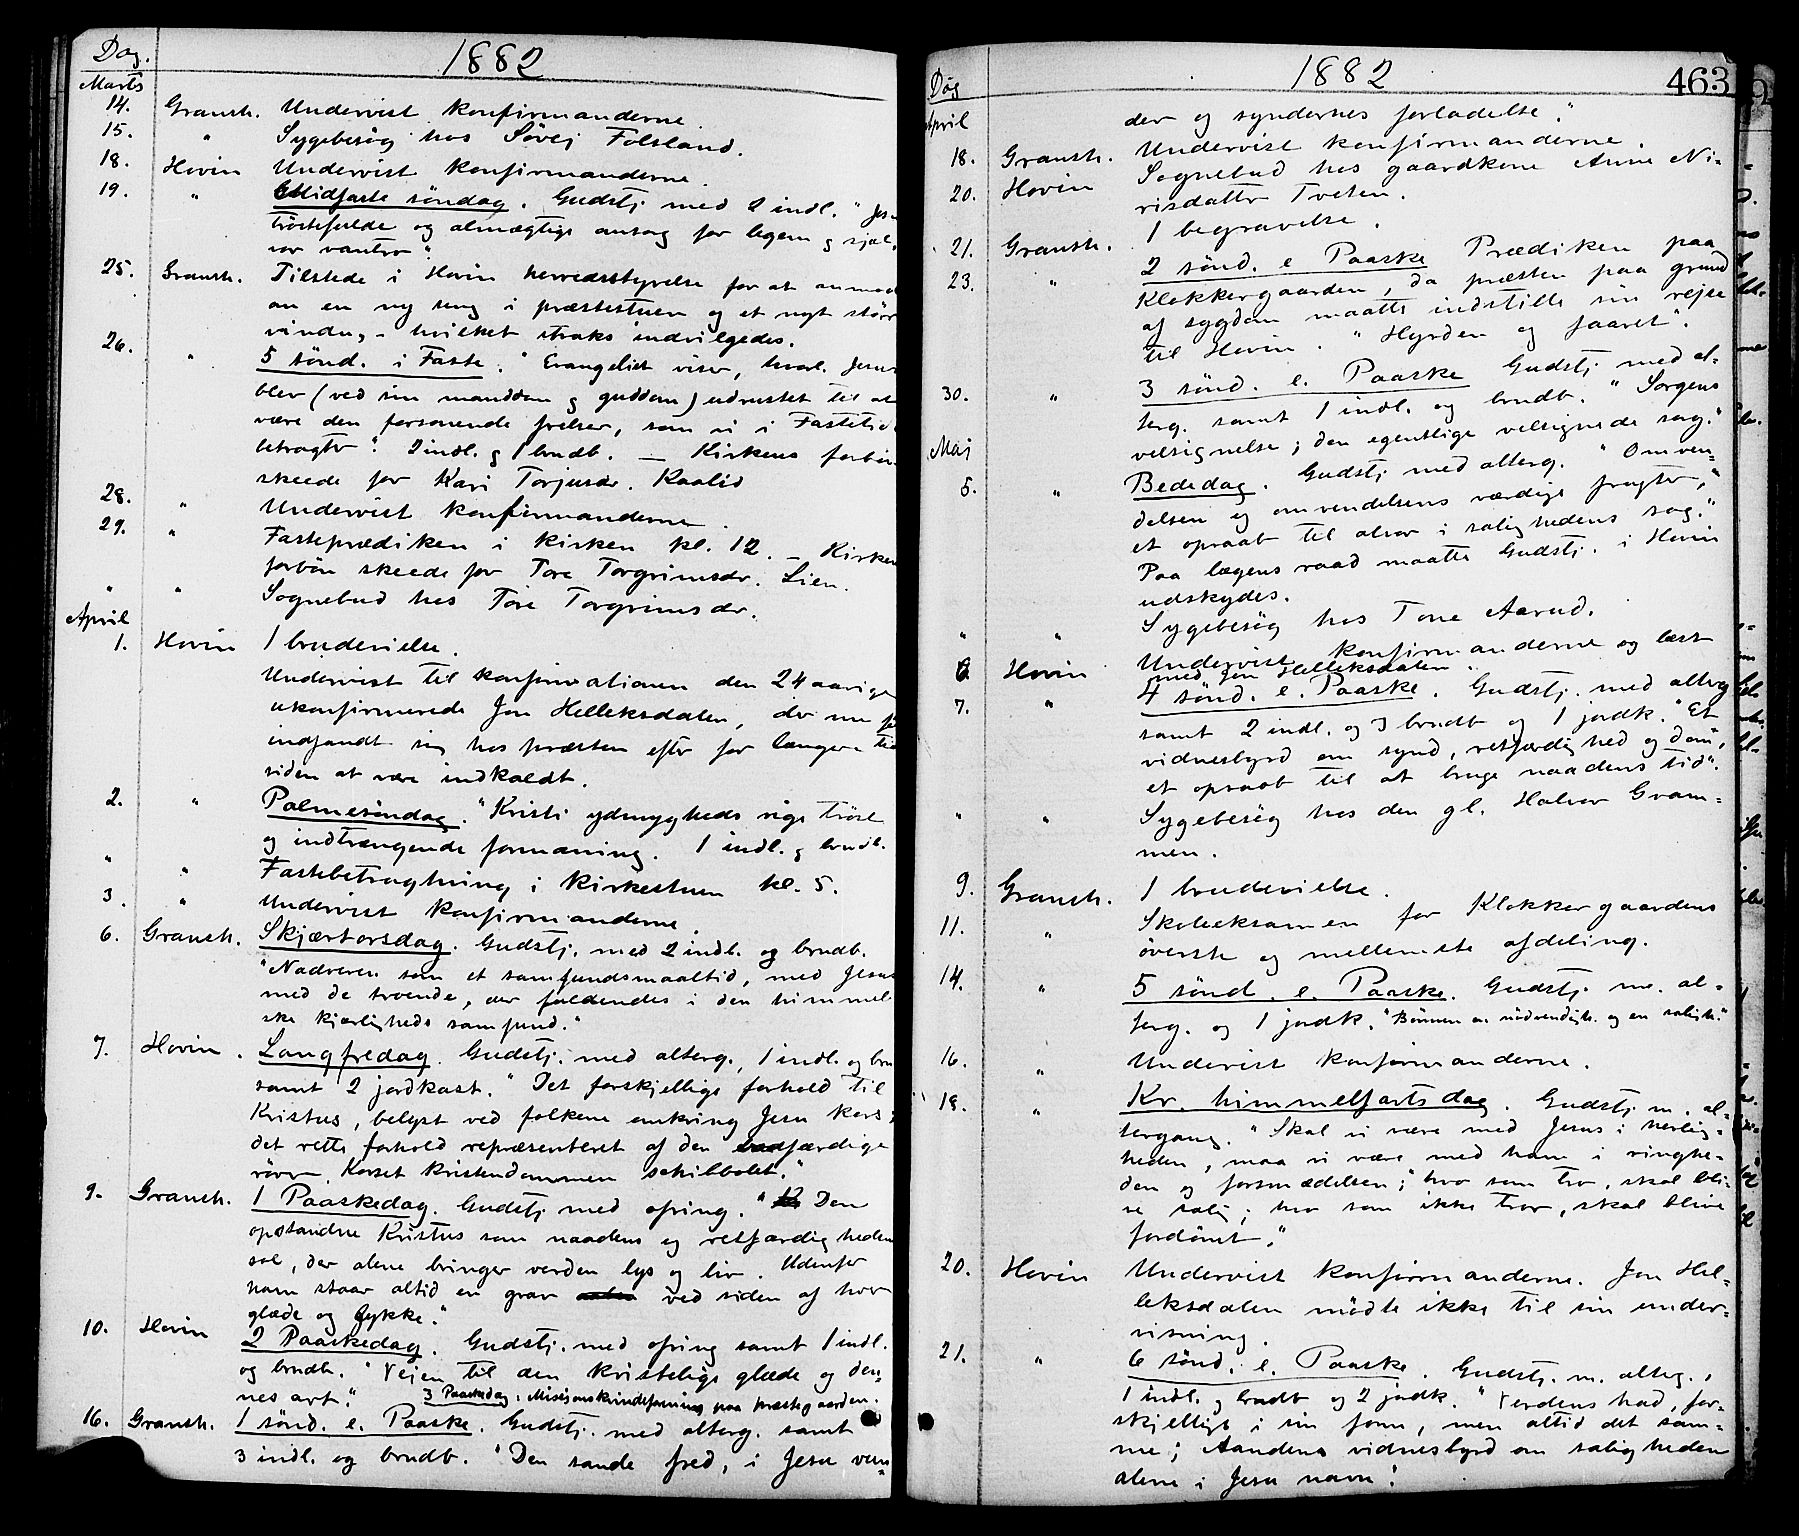 Dag. 1882
Marts
14. Gransh. Undervist konfirmanderne.
15. " Sygebesøg hos Søvej Folsland.
18. Hovin Undervist konfirmanderne.
19. " Midfaste søndag. Gudstj. med 2 indl. "Jesu
trøstefulde og almægtige ansøg for legem og sjæl,
vor vantro".
25. Gransh. Tilstede i Hovin herredsstyrelse for at anmod
om en ny seng i præstestuen og et nyt større
vindu, - hvilket straks indvilgedes.
26. " 5 sønd. i Faste. "Evangeliet viser, hvorl. Jesus
blev (ved sin manddom og guddom) udrustet til at
være den forsonende frelser, som vi i Fastetid
betragter". 2 indl. og 1 brudb. — Kirkens forbøn
skeede for Kari Torjusdr. Kaalid
28. " Undervist konfirmanderne.
29. " Fasteprædiken i kirken kl. 12. — Kirken
forbøn skeede for Tore Torgrimsdr. Lien.
" " Sognebud hos Tore Torgrimsdr.
April
1. Hovin 1 brudevielse.
Undervist til konfirmationen den 24 aarige
ukonfirmerede Jon Helleksdalen, der nu
indfandt sig hos præsten efter for længere tid
siden at være indkaldt.
2. " Palmesøndag. "Kristi ydmygheds rige trøst
og indtrængende formaning. 1 indl. og brudb.
" " Fastebetragtning i kirkestuen kl. 5.
3. " Undervist konfirmanderne.
6. Gransh. Skjærtorsdag. Gudstj. med 2 indl. og brudb.
"Nadveren som et samfundsmaaltid, med Jesus
med de troende, der fuldendes i den himmel
ske kjærligheds samfund."
7. Hovin. Langfredag. Gudstj. med alterg., 1 indl. og bru
samt 2 jordkast. "Det forskjellige forhold til
Kristus, belyst ved folkene omkring Jesu kors;
det rette forhold repræsenteret af den bodfærdige
røver. Korset kristendommen schilbolet."
9. Gransh. 1 Paaskedag. Gudstj. med ofring. " Den
opstandne Kristus som naadens og retfærdigheden
sol, der alene bringer verden lys og liv. Udenfor
ham staar altid en grav ved siden af hver
glæde og lykke".
10. Hovin 2 Paaskedag. Gudstj. med ofring samt 1 indl.
og brudb. "Vejen til den kristelige glæde og den-
nes art". 3 Paaskedag. Misjonskvindeforening paa præstegaarden.
16. Gransh. 1 sønd. e. Paaske. Gudstj. med alterg. samt
3 indl. og brudb. "Den sande fred, i Jesu vun-
Dag 1882 463
April der og syndernes forladelse".
18. Gransh. Undervist konfirmanderne.
20. Hovin Sognebud hos gaardkone Anne Ni-
risdatter Tveten.
21. Gransh. 1 begravelse.
23. " 2 sønd. e. Paaske Prædiken paa
Klokkergaarden, da præsten paa grund
af sygdom maatte indstille sin rejse
til Hovin. "Hyrden og faaret".
30. " 3 sønd. e. Paaske Gudstj. med al-
terg. samt 1 indl. og brudb. "Sorgens
velsignelse; den egentlige velsignede sorg."
Maj
5. " Bededag. Gudstj. med alterg. "Omven-
delsen og omvendelsens værdige frugter,"
et opraab til alvor i salighedens sag."
Paa lægens raad maatte Gudstj. i Hovin
udskydes.
" " Sygebesøg hos Tone Aarud.
6 Hovin Undervist konfirmanderne og læst
med Jon Helleksdalen.
7. " 4 sønd. e. Paaske. Gudstj. med alterg
samt 2 indl. og 3 brudb og 1 jordk. "Et
vidnesbyrd om synd, retfærdighed og dom",
et opraab til at bruge naadens tid".
" " Sygebesøg hos den gl. Halvor Gram-
men.
9. Gransh. 1 brudevielse.
11. " Skoleeksamen for Klokkergaardens
øverste og mellemste afdeling.
14. " 5 sønd. e. Paaske. Gudstj. me. al-
terg. og 1 jordk. "Bønnen en nødvendigh. og en saligh."
16. " Undervist konfirmanderne.
18. " Kr. himmelfartsdag. Gudstj. m. al-
tergang. "Skal vi være med Jesus i herlig-
heden, maa vi være med ham i ringhe-
den og forsmædelsen; hvo som tror, skal bli-
ve salig; hvo som ikke tror, skal blive
fordømt."
20. Hovin Undervist konfirmanderne. Jon Hel-
leksdalen mødte ikke til sin under-
visning.
21. " 6 sønd. e. Paaske. Gudstj. m. alterg.,
1 indl. og brudb og 2 jordk. "Verdens had, for-
skjelligt i sin form, men altid det sam-
me; Aandens vidnesbyrd om saligheden
alene i Jesu navn".